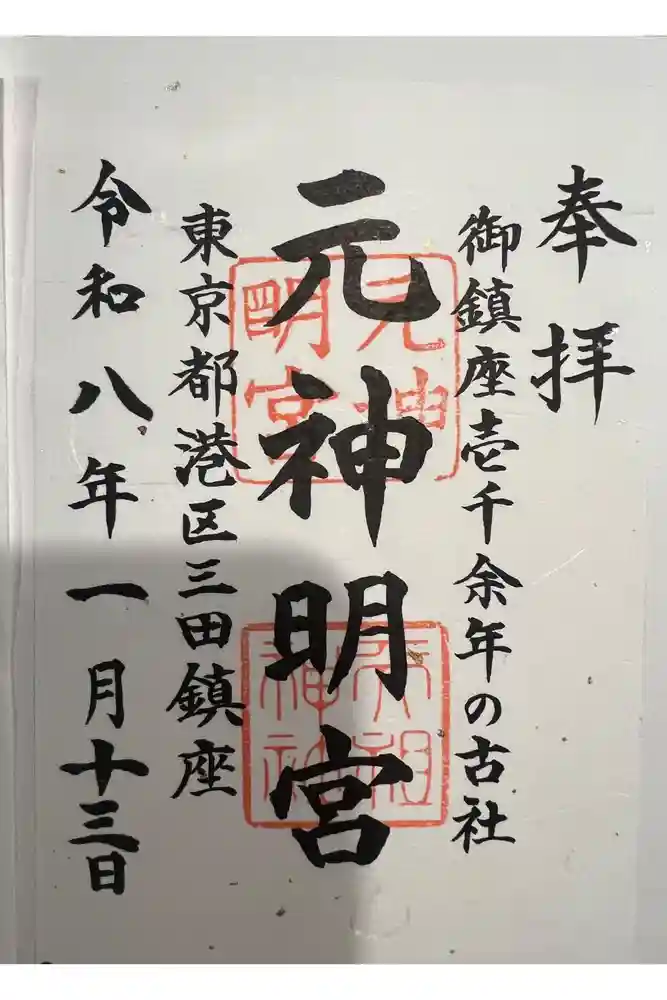 奉拝
御鎮座壱千余年の古社
元神明宮
元神明宮
天祖神社
東京都港区三田鎮座
令和八年一月十三日